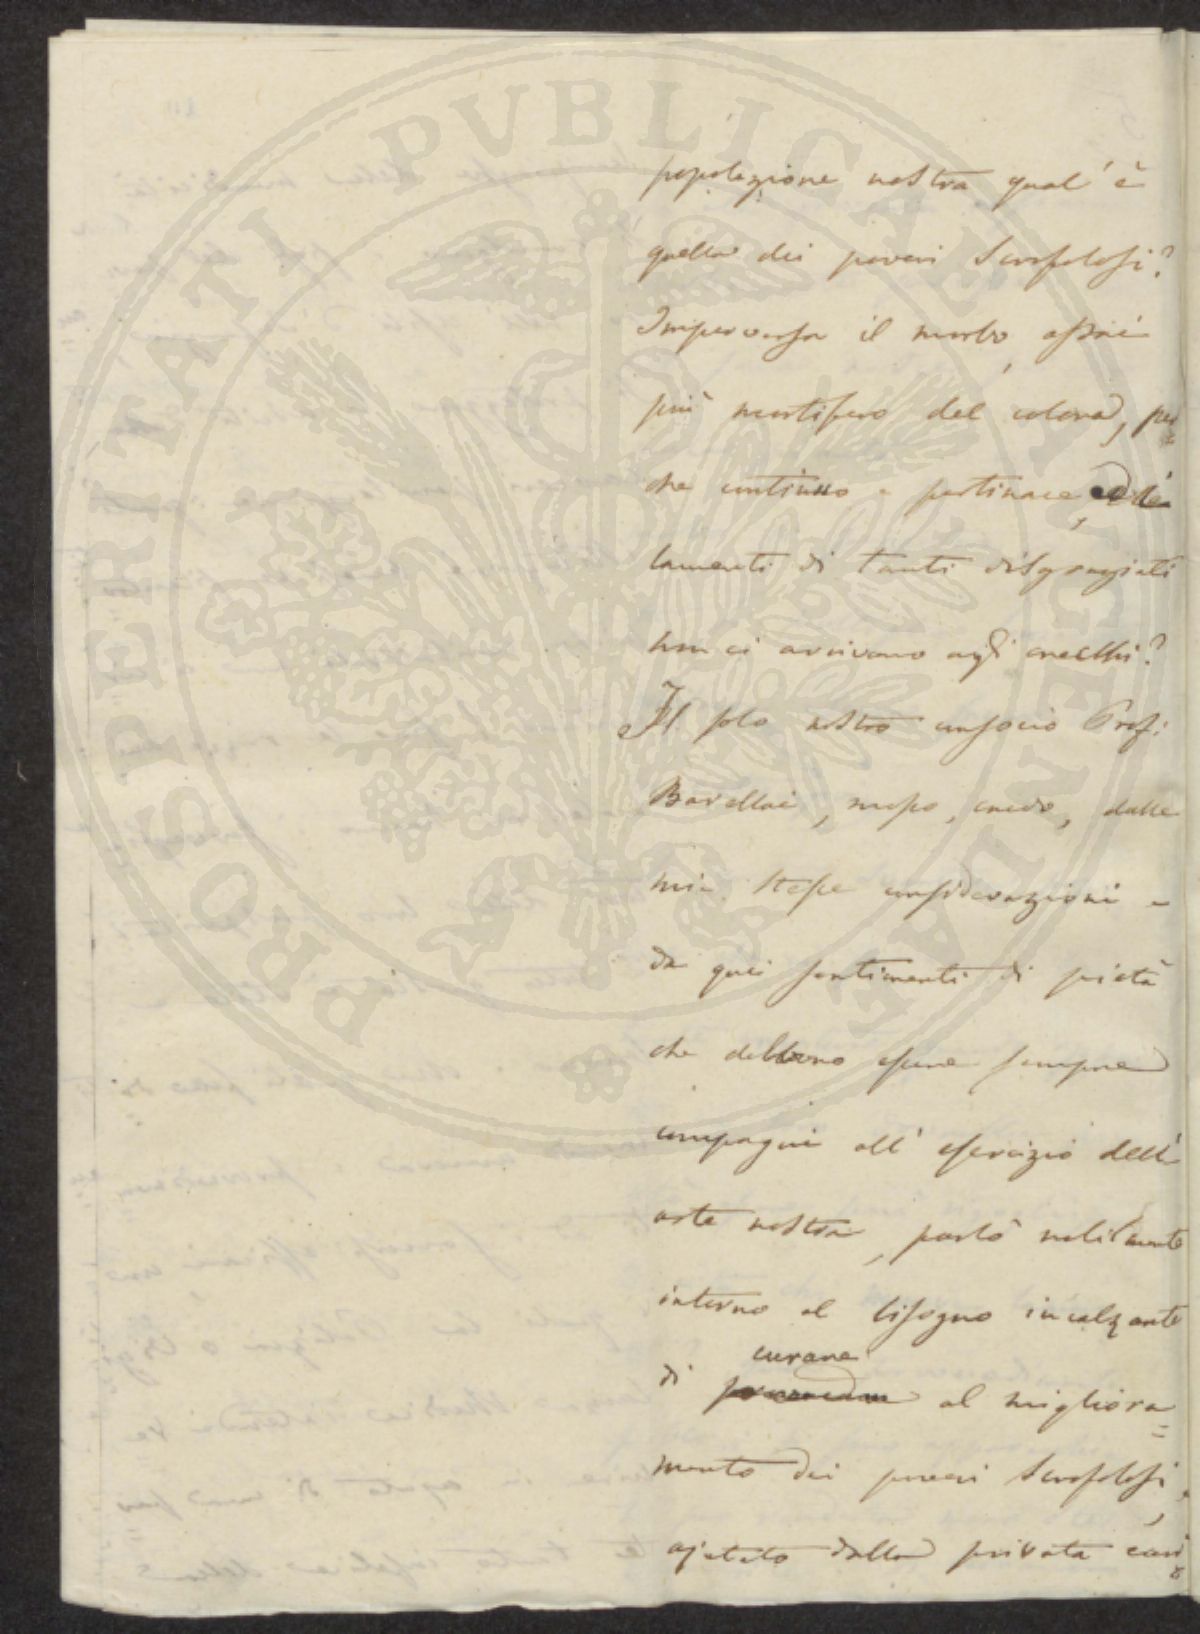 PROSPERITATI PUBLICAE AUGENDAE
popolazione nostra qual'è
quella dei poveri Scrofolosi?
Imperversa il morbo, assai
più mortifero del colera, per=
che continuo e pertinace, ed i
lamenti di tanti disgraziati
non ci arrivano agli orecchi?
Il solo nostro consocio Prof:
Barellai, mosso, credo, dalle
mie stesse considerazioni e
da quei sentimenti di pietà
che debbono essere sempre
compagni all'esercizio dell'
arte nostra, parlò nobilmente
intorno al bisogno incalzante
di curare al migliora=
mento dei poveri Scrofolosi,
ajutato dalla privata cari=